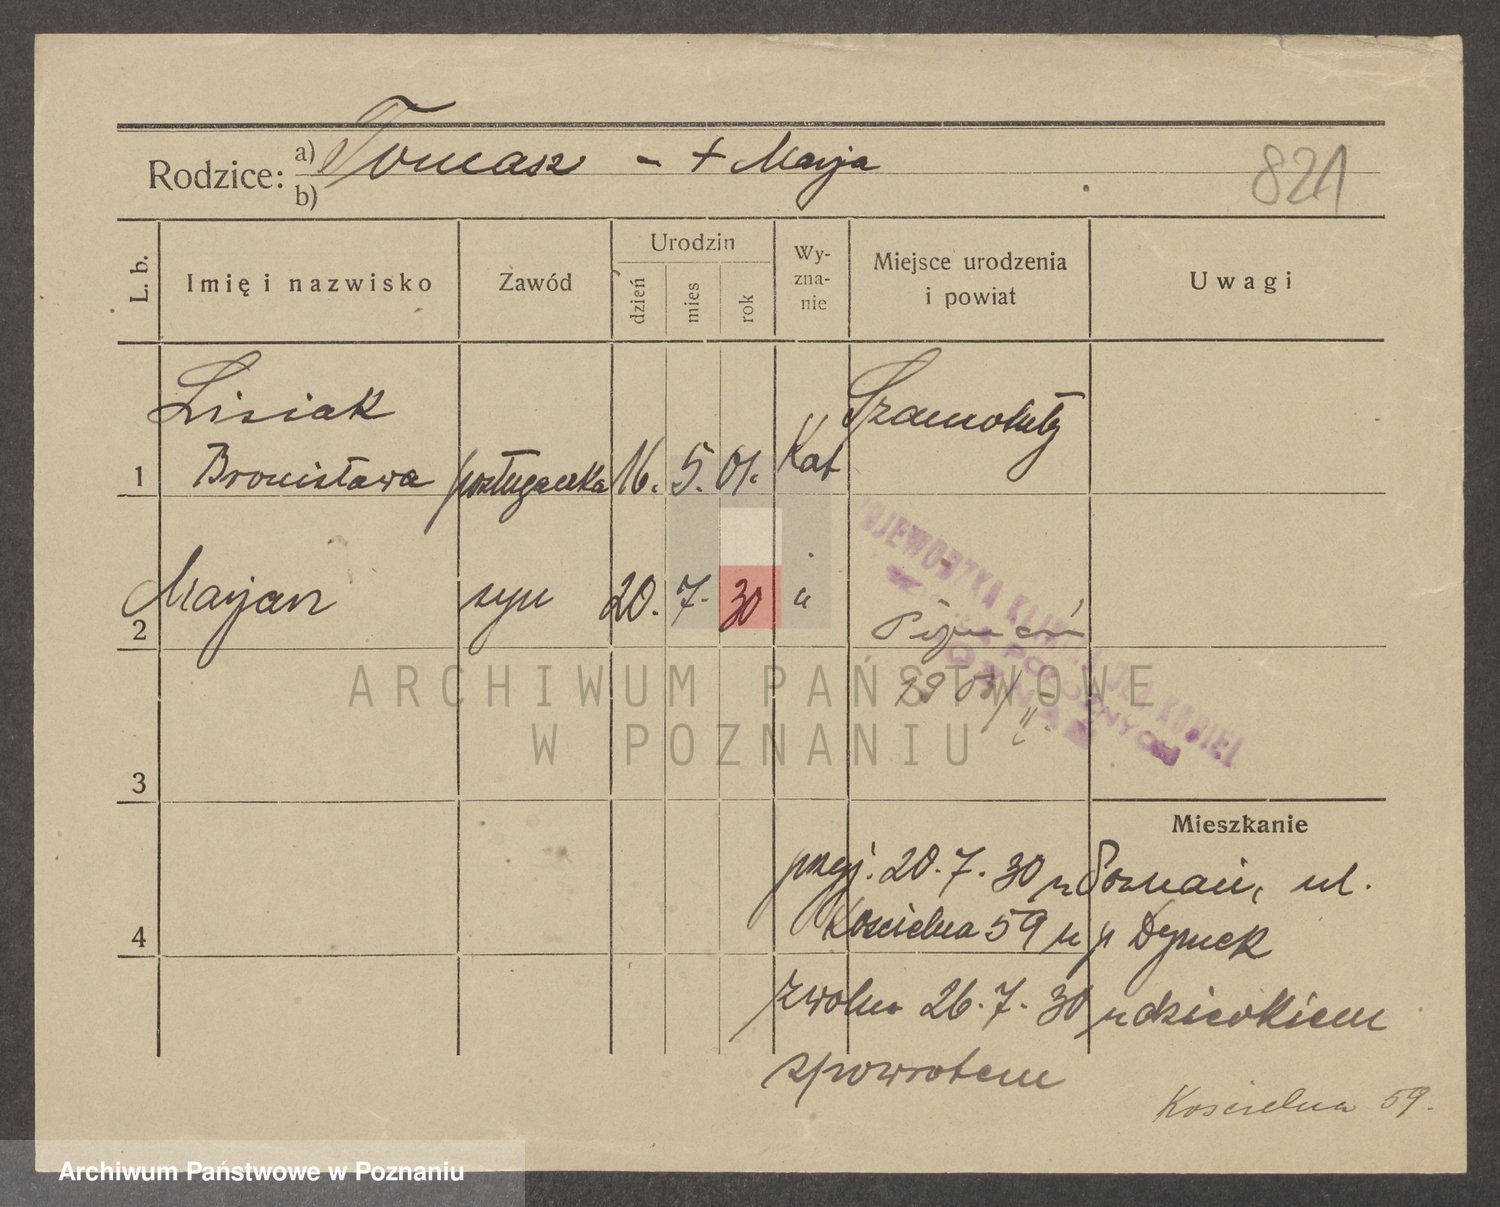 Rodzice: a) Tomasz - + Marja
b)
821
L. b.
Imię i nazwisko
Zawód
Urodzin
dzień
mies
rok
Wy-
zna-
nie
Miejsce urodzenia
i powiat
Uwagi
Lisiak
Bronisława
1
posługaczka
16. 5. 01.
Kat
Szamotuły
2
Marjan
syn
20. 7. 30
"
Poznań
WOJEWÓDZKA KLINIKA KOBIET
POŁOŻNYCH
3
4
Mieszkanie
przyj. 20.7.30 z Poznań, ul.
Kościelna 59 u p Dymek
zwoln 26.7.30 z dzieckiem
spowrotem
Kościelna 59.
ARCHIWUM PAŃSTWOWE
W POZNANIU
Archiwum Państwowe w Poznaniu